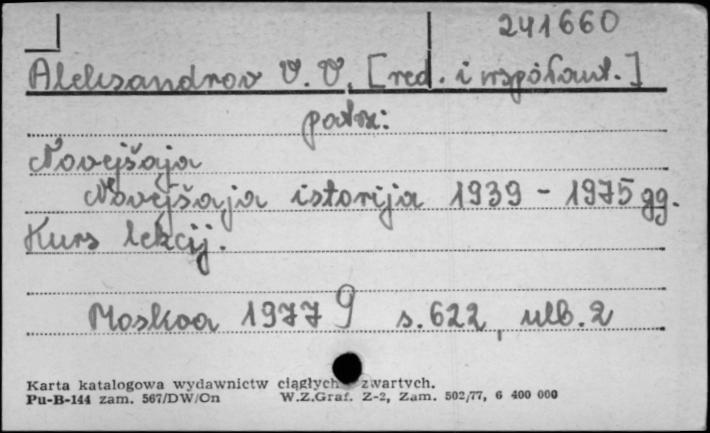 241660
Aleksandrov V. V. [red. i współaut.]
patrz:
Novejšaja
Novejšaja istorija 1939 - 1975 gg.
Kurs lekcij.
Moskva 1977 9 s. 622, ulb. 2
Karta katalogowa wydawnictw ciągłych zwartych.
Pu-B-144 zam. 567/DW/On W.Z.Graf. Z-2, Zam. 502/77, 6 400 000